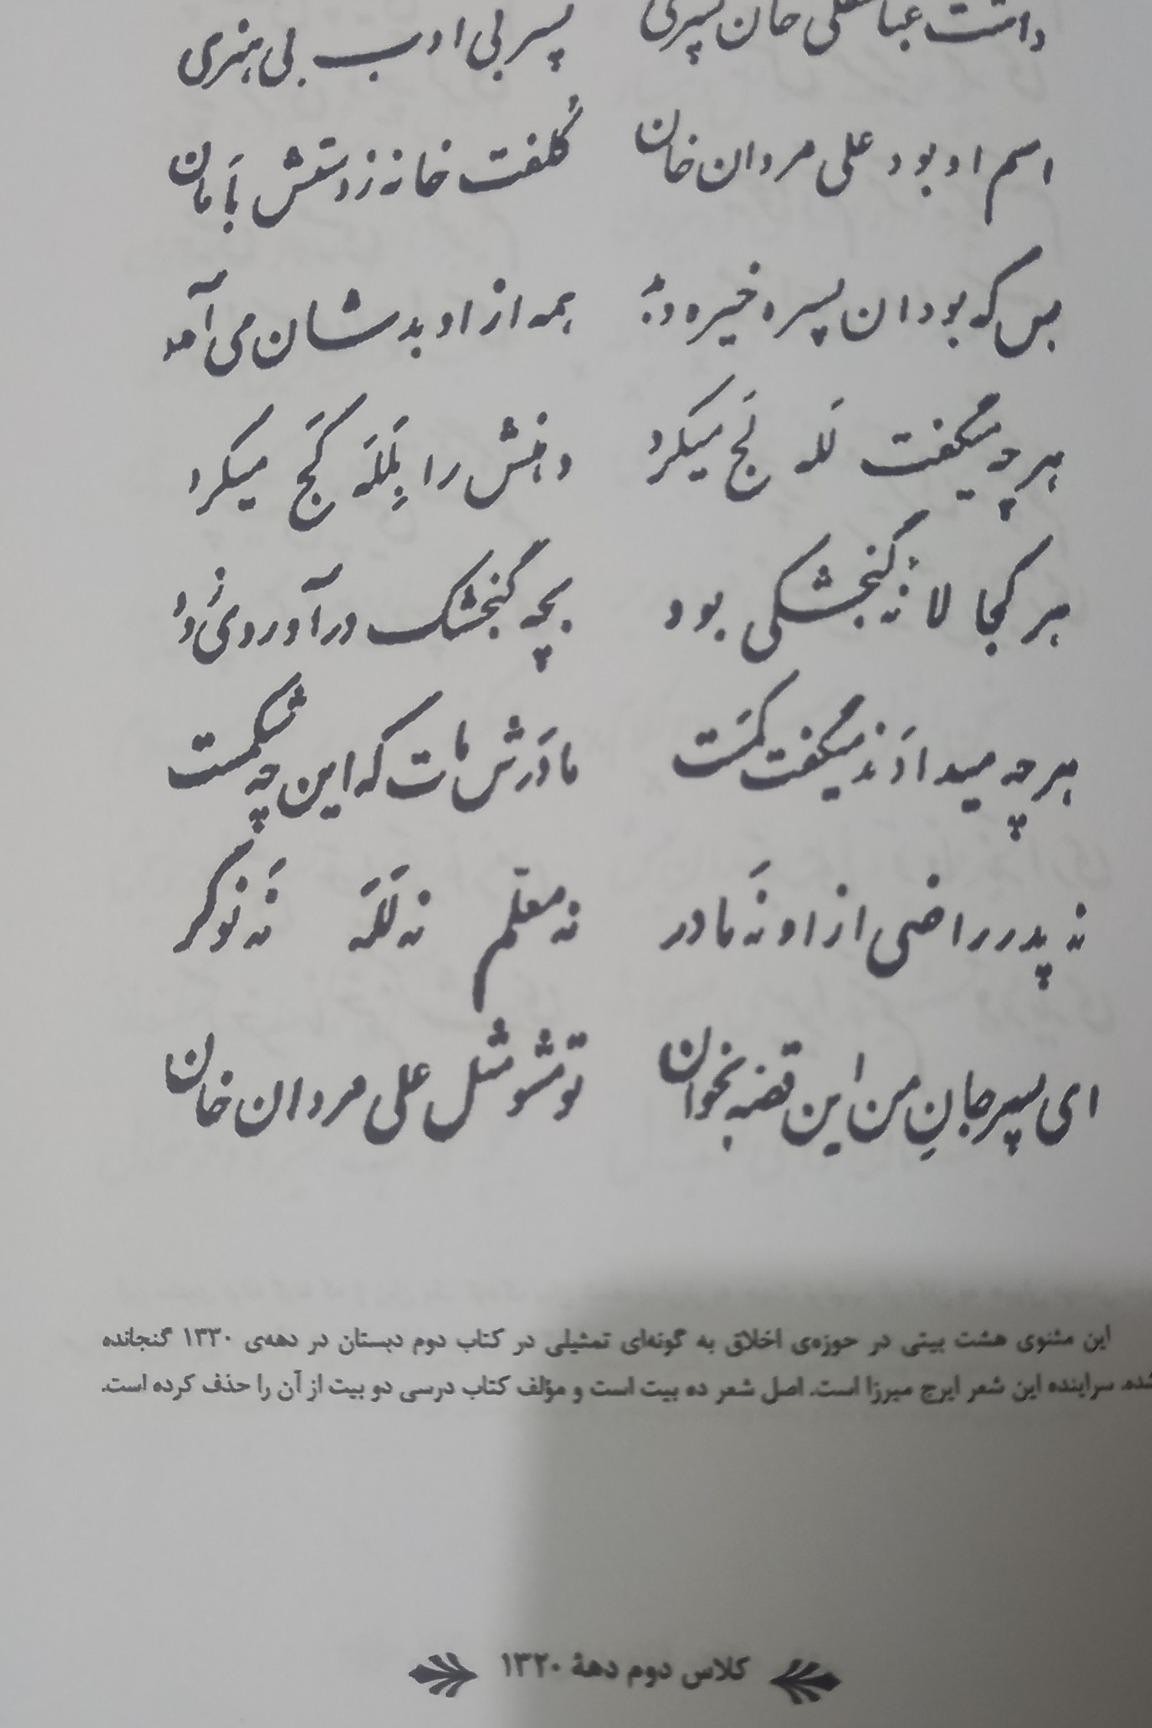 داشت عباسقلی خان پسری پسر بی ادب بی هنری
اسم او بود علی مردان خان کُلفت خانه ز دستش بَامان
بس که بود ان پسره خیره و بد همه از او بدشان می آمد
هر چه میگفت لَله لَج میکرد دهنش را بِلَلَه کَج میکرد
هر کجا لانه گنجشکی بود بچه گنجشک در آوردی زود
هر چه میدادَند میگفت کَمَست مادَرش مات که این چه شکمست
نه پدر راضی از او نَه مادر نه معلّم نه لَلَه نَه نوکر
ای پسر جانِ من این قصّه بخوان تو مشو مثل علی مردان خان
این مثنوی هشت بیتی در حوزه‌ی اخلاق به گونه‌ای تمثیلی در کتاب دوم دبستان در دهه‌ی ۱۳۳۰ گنجانده
شده. سراینده این شعر ایرج میرزا است. اصل شعر ده بیت است و مؤلف کتاب درسی دو بیت از آن را حذف کرده است.
کلاس دوم دههٔ ۱۳۲۰